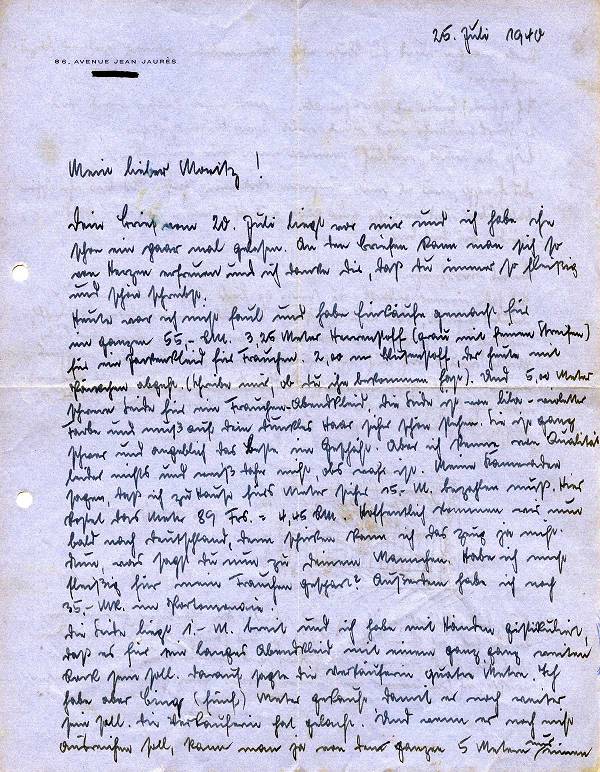 25. Juli 1940
86, AVENUE JEAN JAURÈS
Mein lieber Moritz!
Dein Brief vom 20. Juli liegt vor mir und ich habe ihn
schon ein paar mal gelesen. An den Briefen kann man sich so
von Herzen erfreuen und ich danke dir, daß du immer so fleißig
und schön schreibst.
Heute war ich nicht faul und habe Einkäufe gemacht für
im ganzen 55,- RM. 3,25 Meter Herrenstoff (grau mit feinen Streifen)
für ein für Frauchen. 2,00 m Blusenstoff, der heute mit
Päckchen abgeht. (Schreibe mir, ob du ihn bekommen hast). Und 5,00 Meter
schwere Seide für ein Frauchen-Abendkleid, die Seide ist von lila-violetter
Farbe und muß auf dein dunkles Haar sehr schön stehen. Sie ist ganz
schwer und angeblich das Beste im Geschäft. Aber ich kenne von Qualität
leider nichts und weiß daher nicht, obs wahr ist. Meine Kameraden
sagen, daß ich zu Hause fürs Meter sicher 15.- M. bezahlen muß. Hier
kostet das Meter 89 Frs. = 4,45 RM. Hoffentlich kommen wir nun
bald nach Deutschland, denn schicken kann ich das Zeug ja nicht.
Nun, was sagst du nun zu deinem Mannchen. Habe ich nicht
fleißig für mein Frauchen gespart? Außerdem habe ich noch
35.- Mk. im Portemonnaie!
Die Seide liegt 1.- M. breit und ich habe mit Händen gestikuliert,
daß es für ein langes Abendkleid mit einem ganz ganz weiten
Rock sein soll. Darauf sagte die Verkäuferin quatre Meter. Ich
habe aber (fünf) Meter gekauft damit er noch weiter
sein soll. Die Verkäuferin hat gelacht. Und wenn er noch nicht
ausreichen soll, kann man ja von den ganzen 5 Metern nur einen